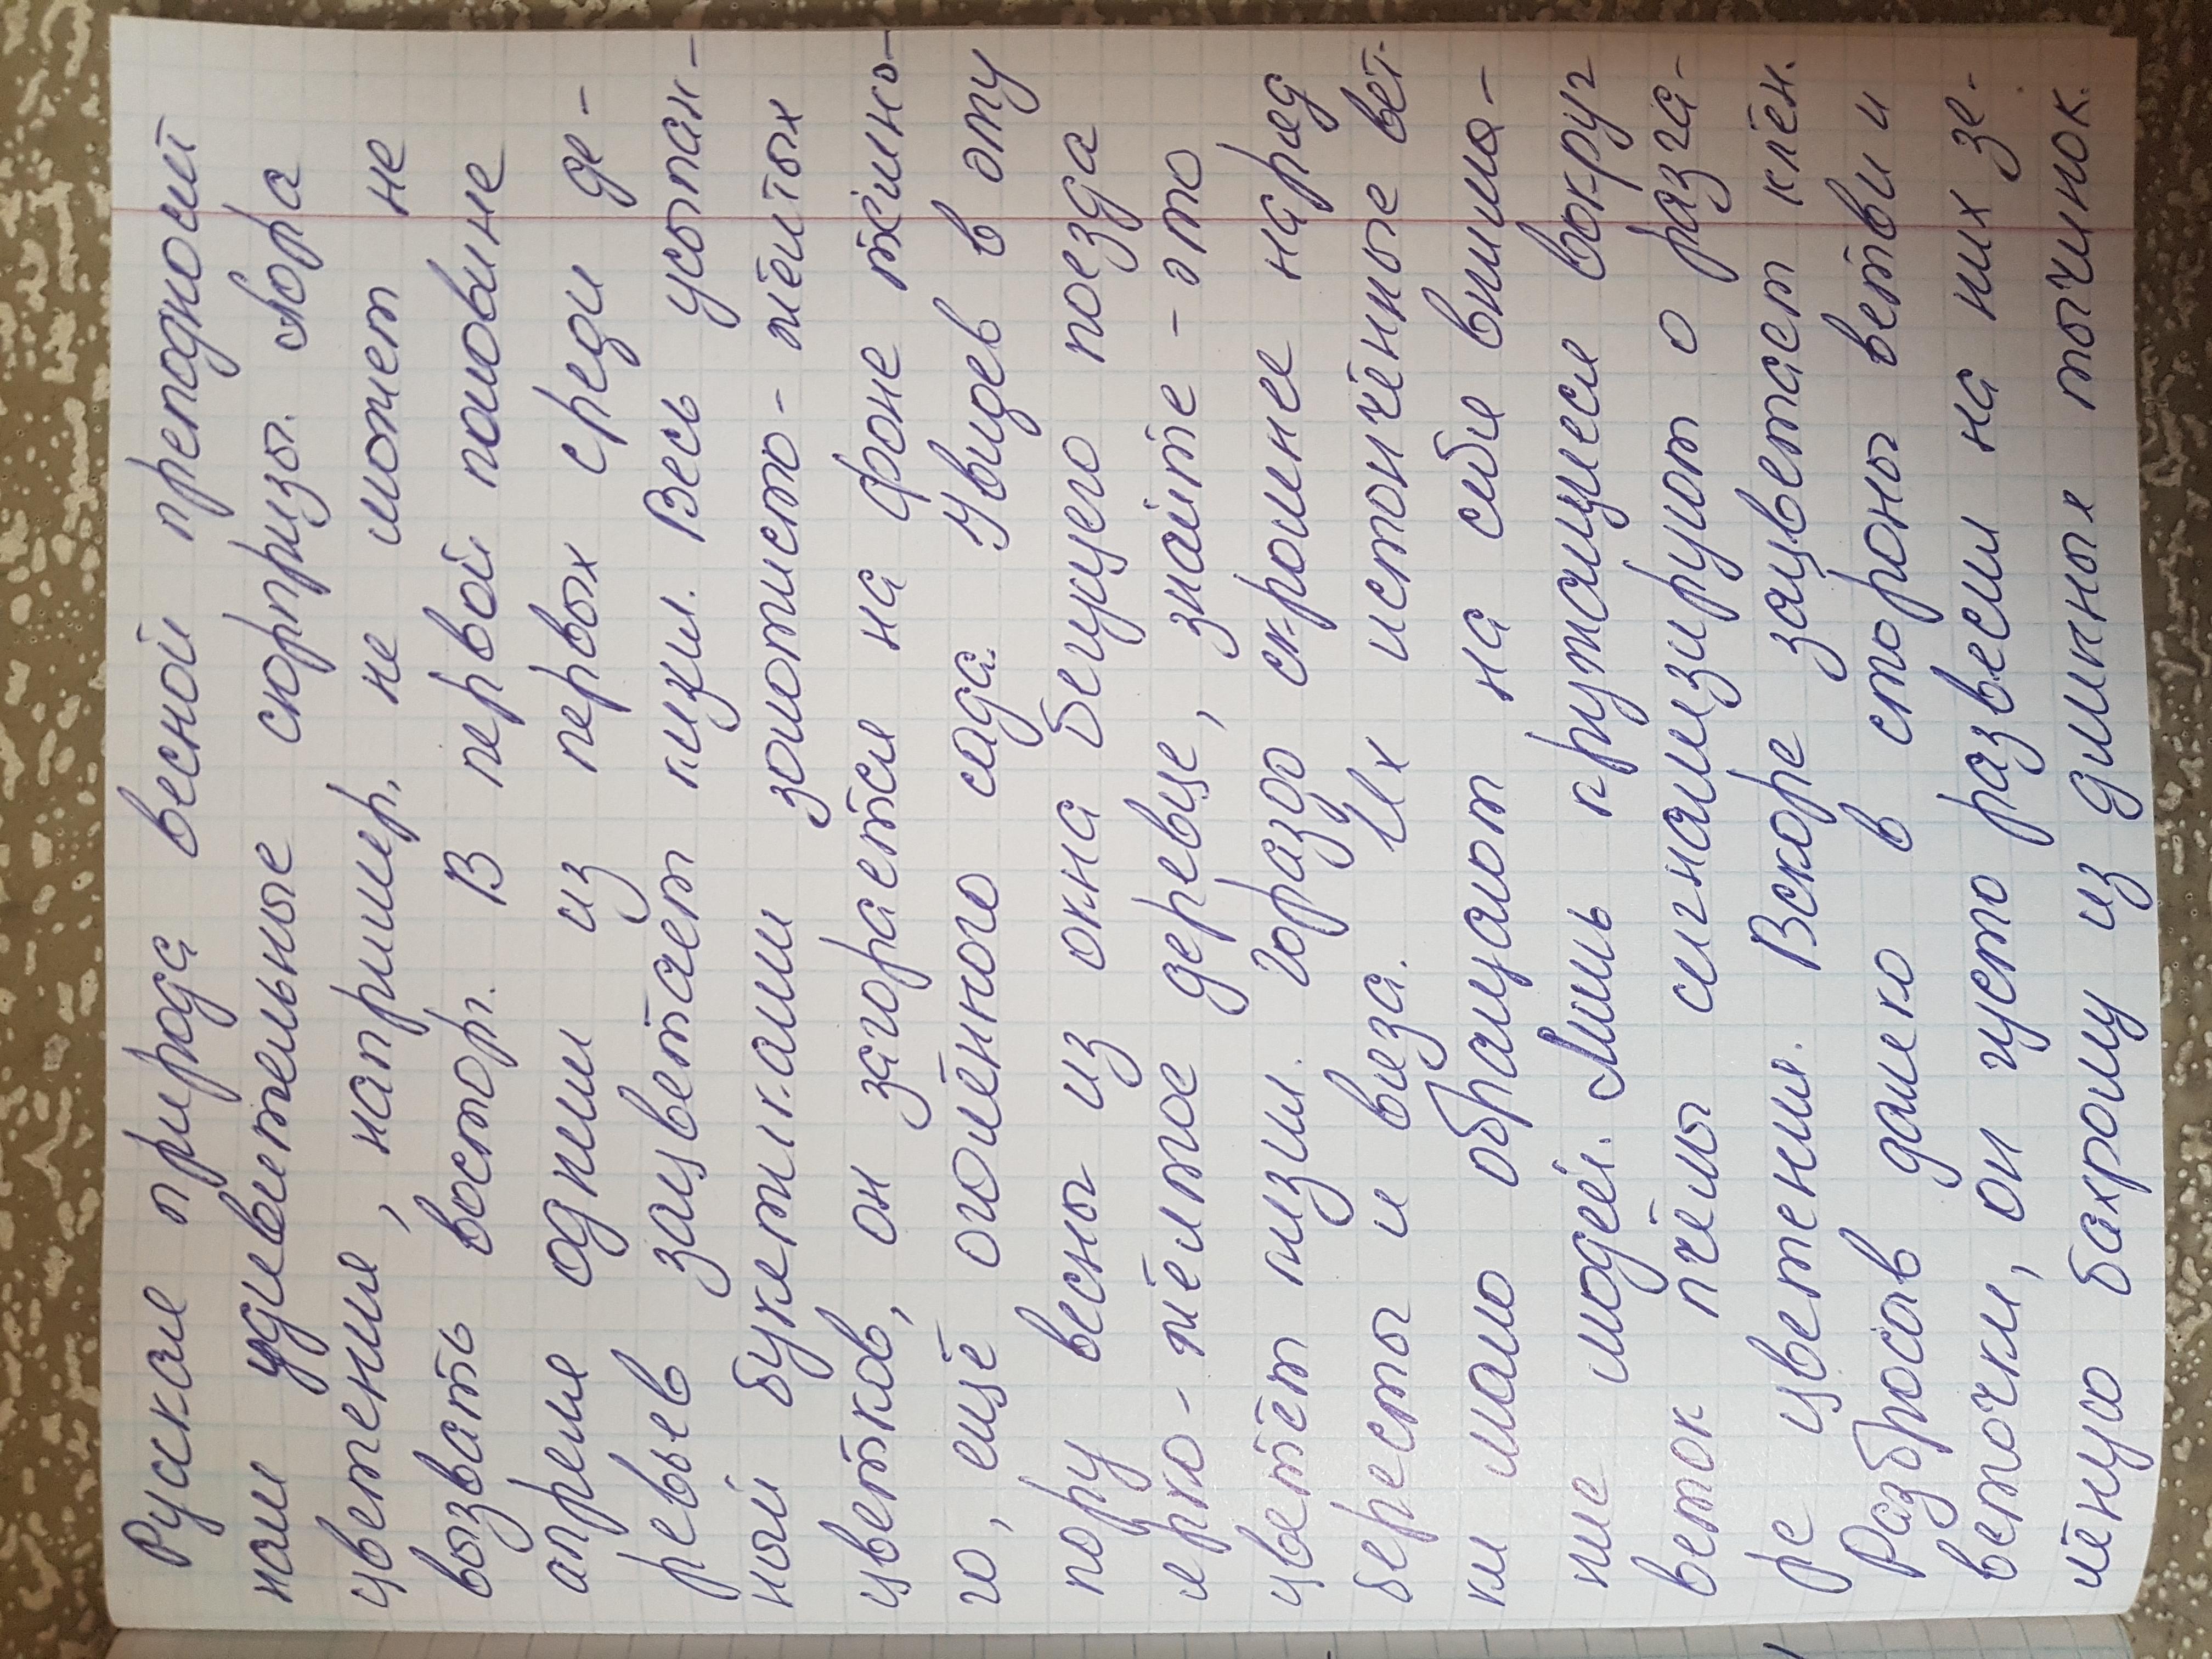 Руская природа весной преподносит
нам удивительные сюрпризы. Пора
цветения, например, не может не
вызвать восторг. В первой половине
апреля одним из первых среди де-
ревьев зацветает кизил. Весь усыпан-
ный букетиками золотисто-жёлтых
цветков, он загорается на фоне тёмно-
го, ещё оголённого сада. Увидев в эту
пору весны из окна бегущего поезда
ярко-жёлтое деревце, знайте - это
цветёт кизил. Гораздо скромнее наряд
бересты и вяза. Их истончённые вет-
ки мало обращают на себя внима-
ние людей. Лишь кружащиеся вокруг
веток пчёлы сигнализируют о разга-
ре цветения. Вскоре зацветает клён.
Разбросав далеко в стороны ветви и
веточки, он густо развесил на них зе-
лёную бахрому из длинных тычинок.